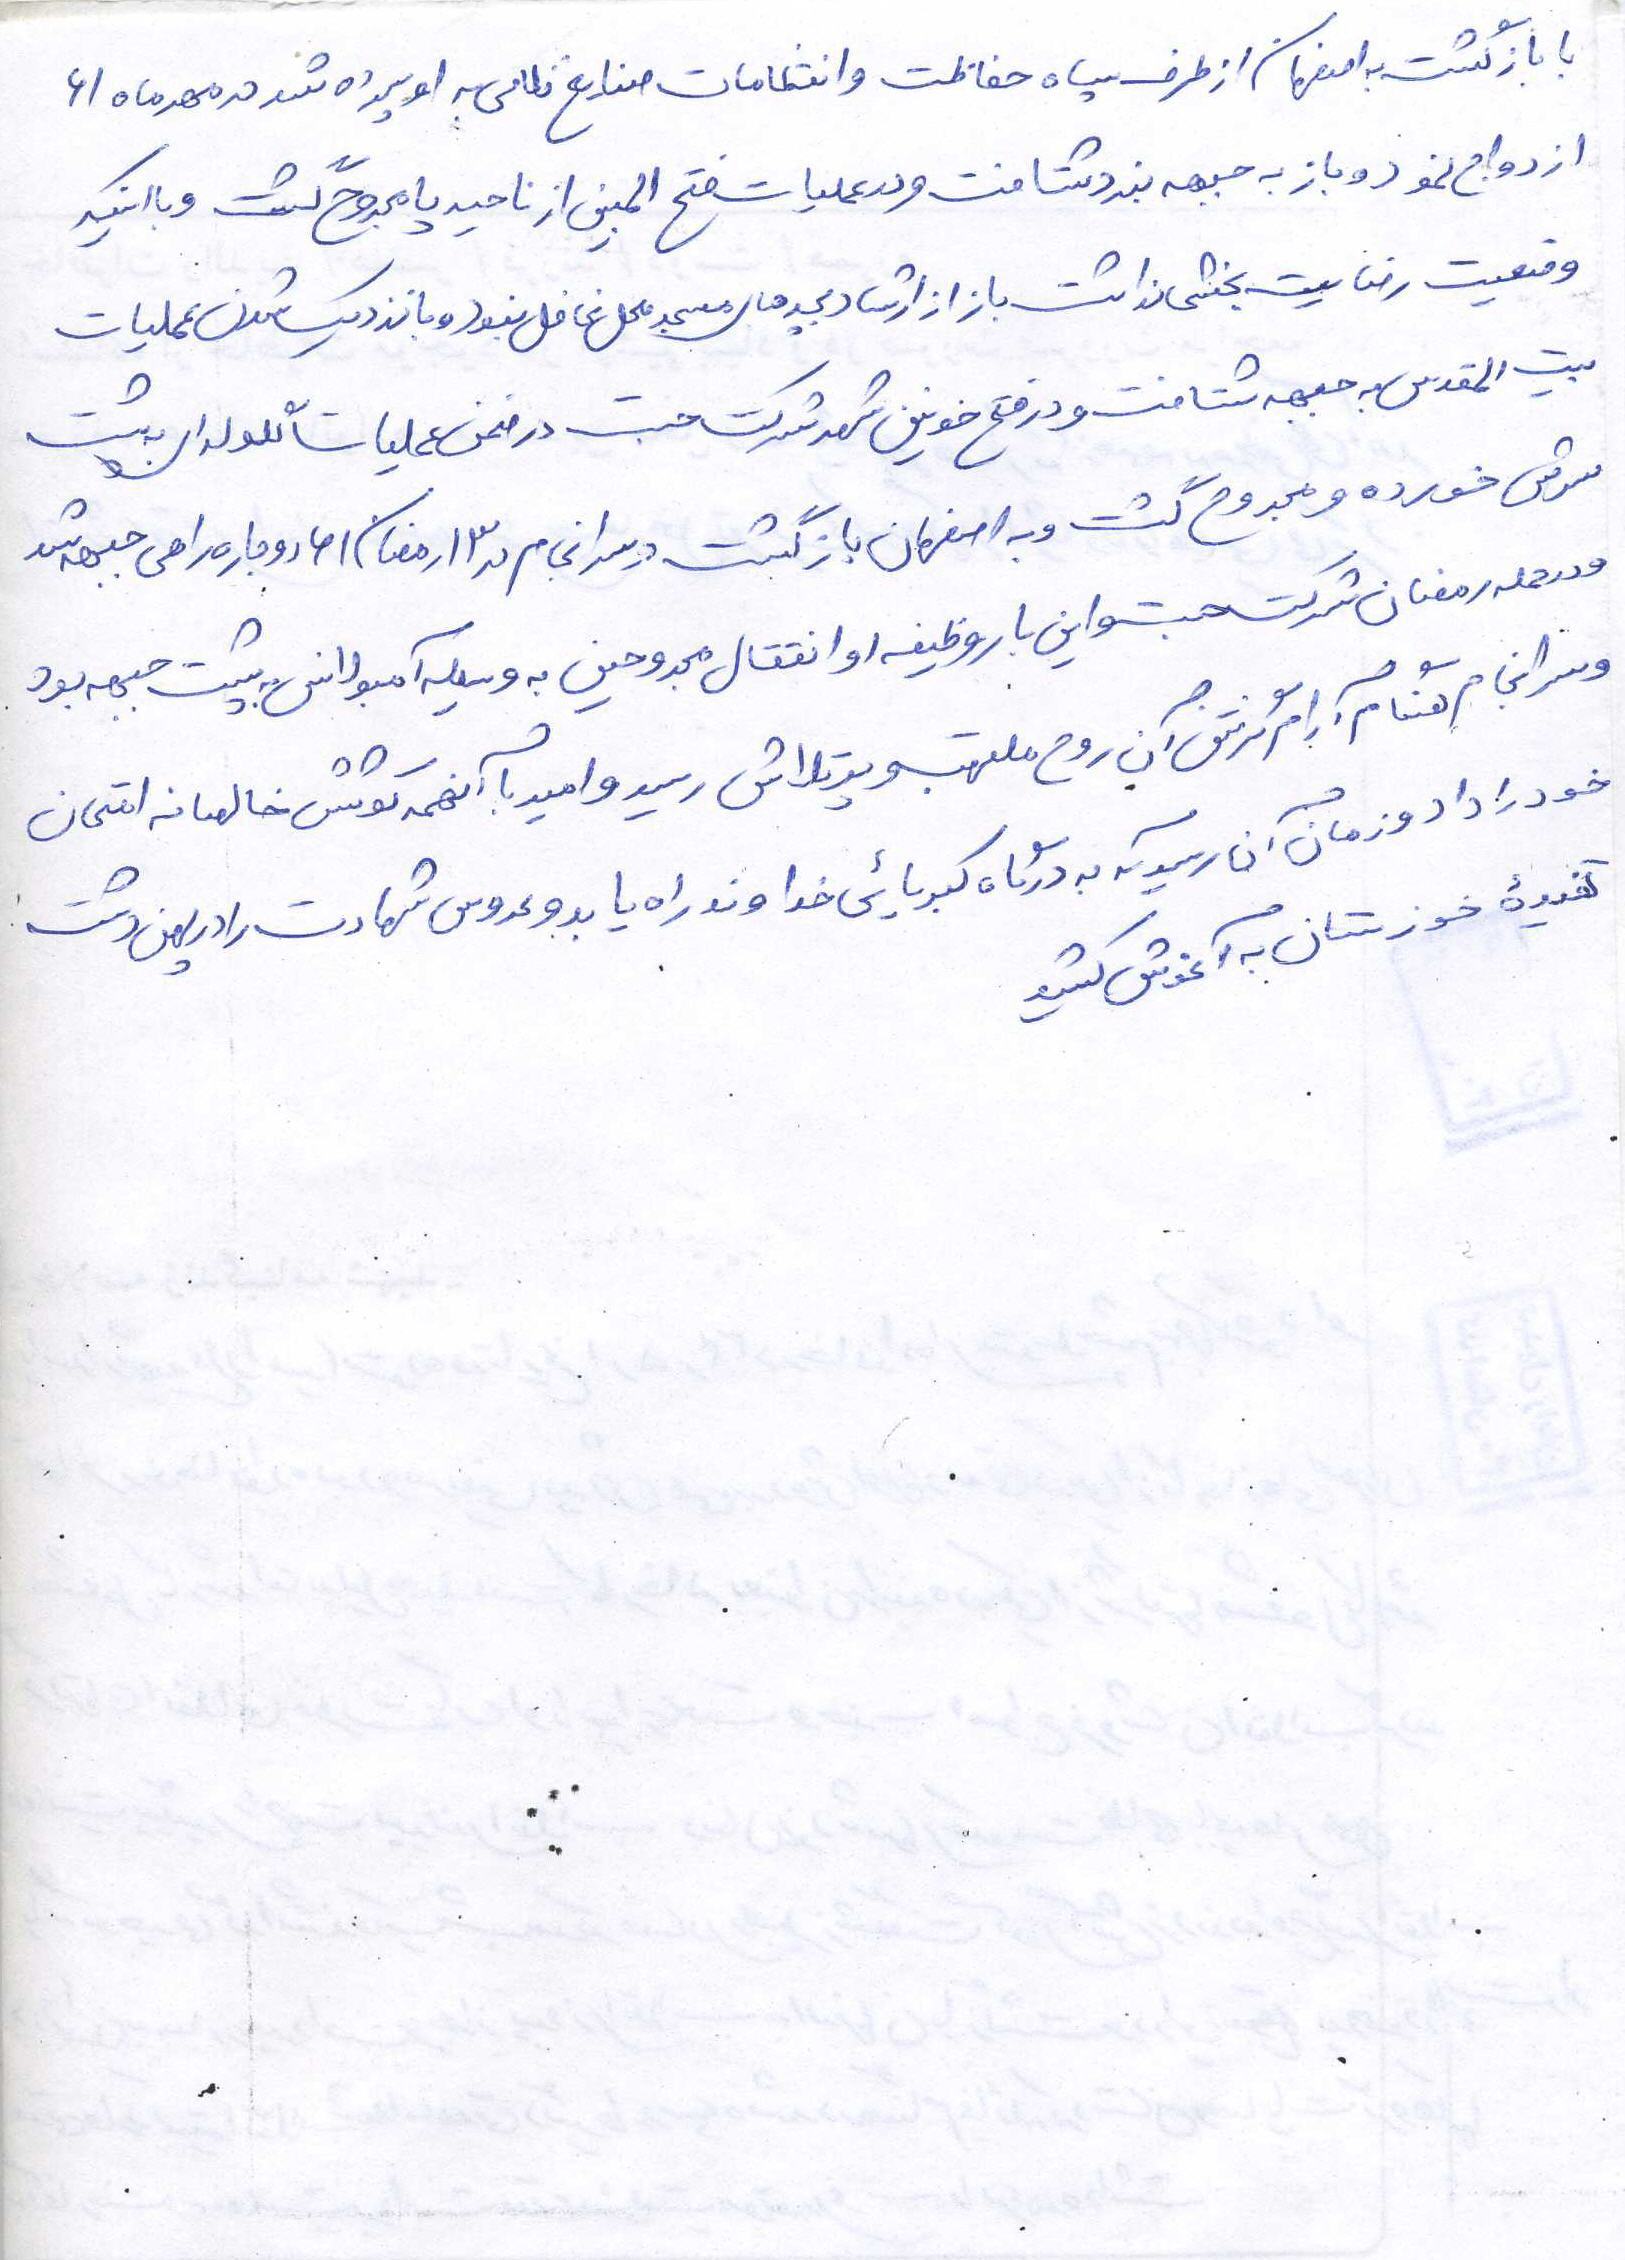 با بازگشت به اصفهان از طرف سپاه حفاظت و انتظامات صنایع نظامی به او سپرده شد در مهر ماه ۶۱
ازدواج نمود و باز به جبهه نبرد شتافت و در عملیات فتح المبین از ناحیه پا مجروح گشت و با اینکه
وضعیت رضایت بخشی نداشت باز از ارشاد بچه های مسجد محل غافل نبود و با نزدیک شدن عملیات
بیت المقدس به جبهه شتافت و در فتح خونین شهر شرکت جست در ضمن عملیات گلوله ای به پشت
سرش خورده و مجروح گشت و به اصفهان بازگشت و سرانجام در ۱۳ رمضان ۶۱ دوباره راهی جبهه شد
و در حمله رمضان شرکت جست و این بار وظیفه او انتقال مجروحین به وسیله آمبولانس به پشت جبهه بود
و سرانجام هنگام آرام گرفتن آن روح ملتهب و پرتلاش رسید و امید با آنهمه کوشش خالصانه امتحان
خود را داد و زمان آن رسید که به درگاه کبریائی خداوند راه یابد و عروس شهادت را در پهن دشت
تفتیدهٔ خوزستان به آغوش کشید